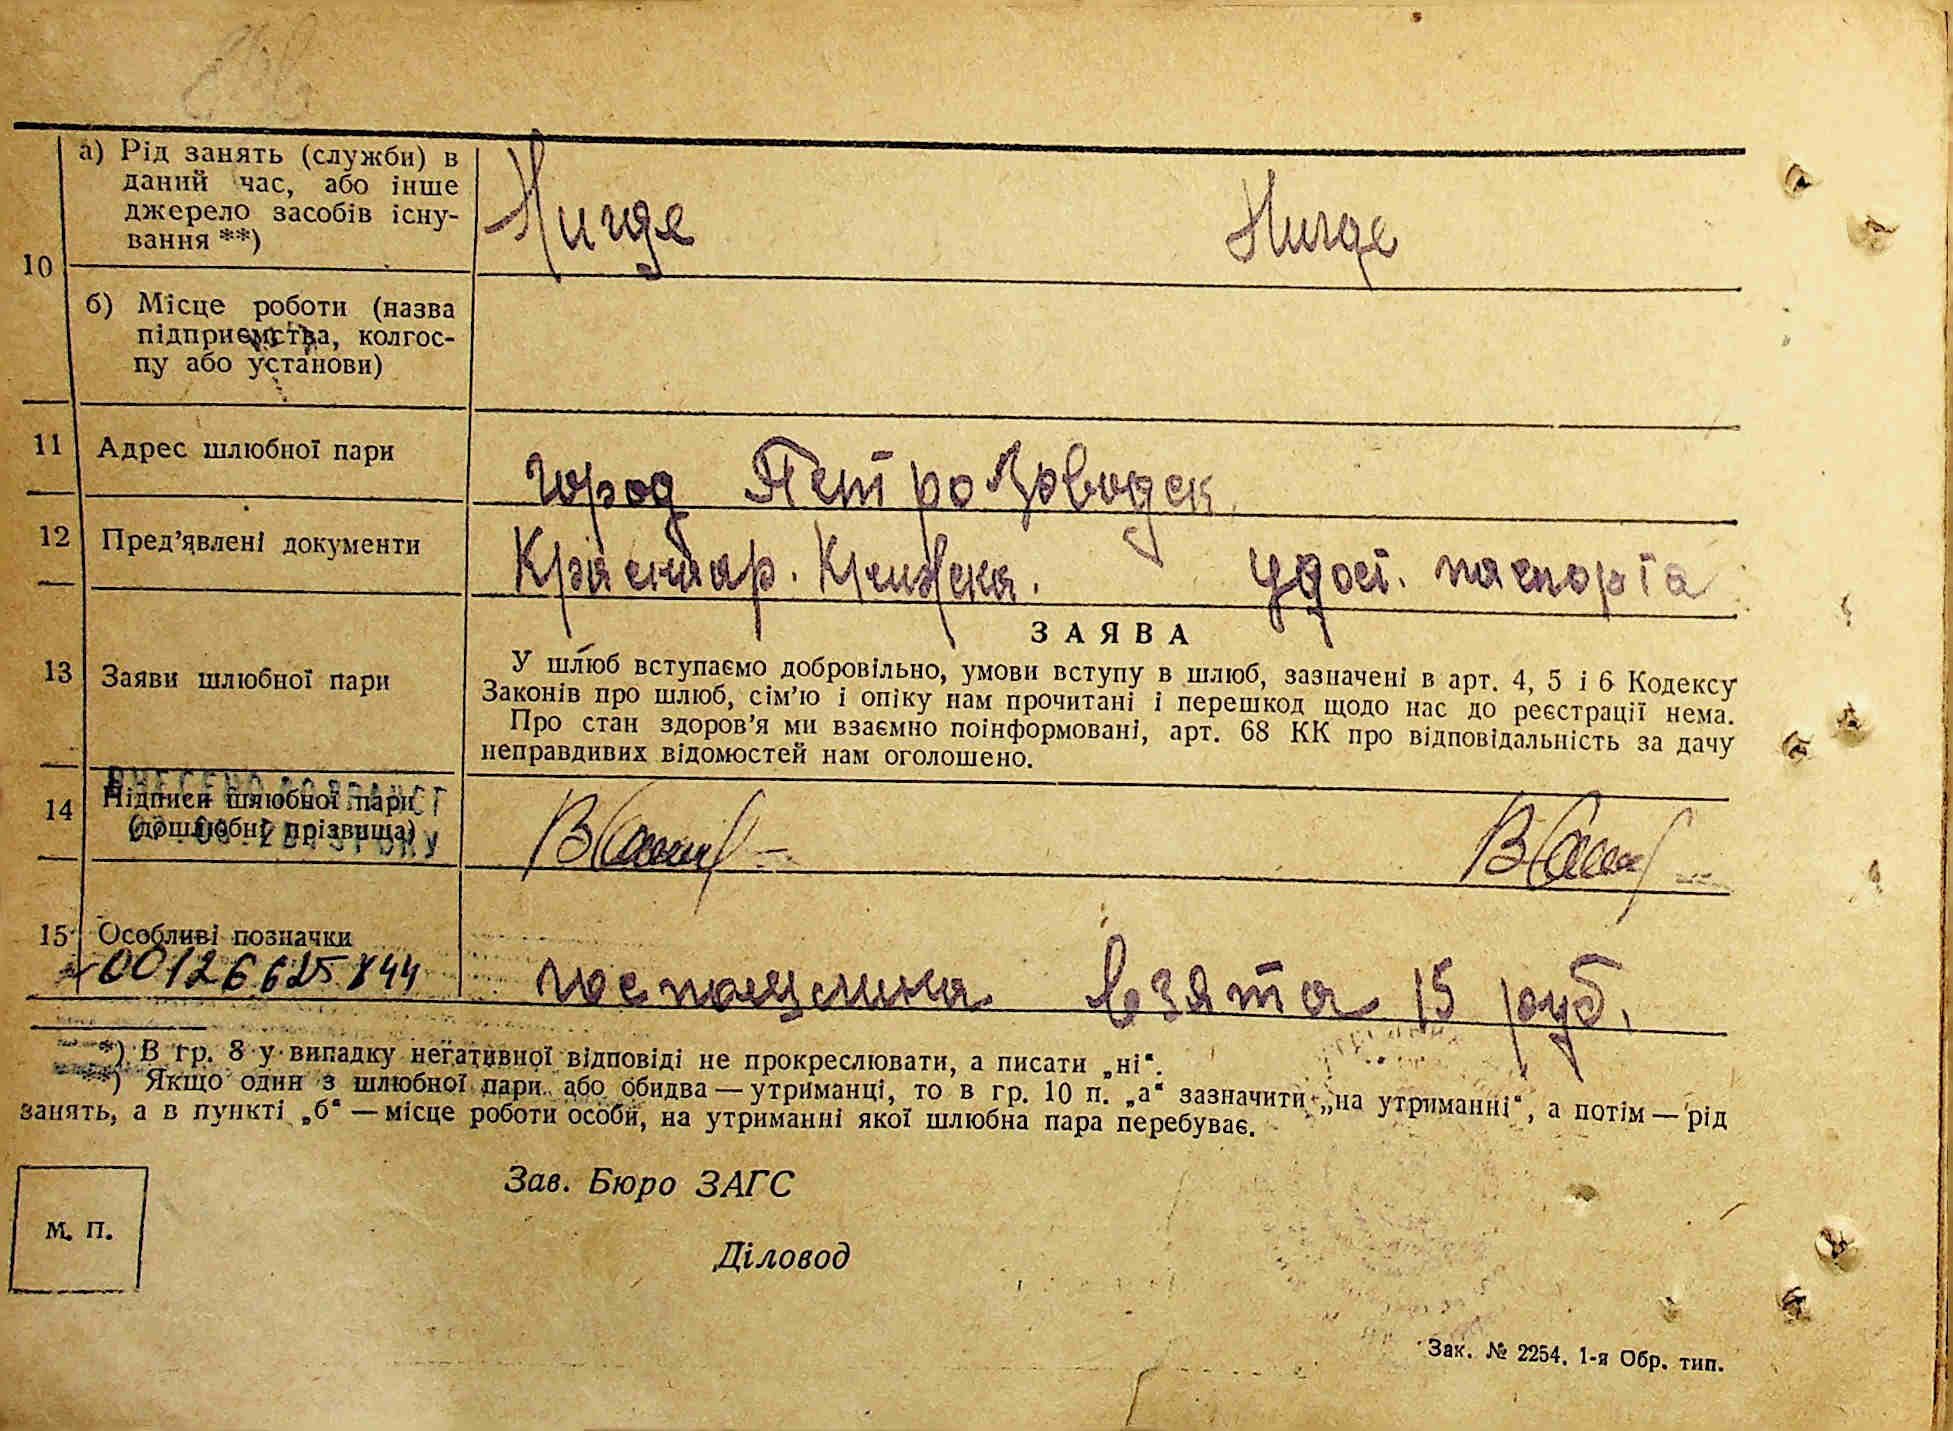 10
а) Рід занять (служби) в
даний час, або інше
джерело засобів існу-
вання **)
Нигде Нигде
б) Місце роботи (назва
підприємства, колгос-
пу або установи)
11 Адрес шлюбної пари
город Петрозаводск
12 Пред’явлені документи
Краснاар. Книжка. удост. паспорта
ЗАЯВА
13 Заяви шлюбної пари
У шлюб вступаємо добровільно, умови вступу в шлюб, зазначені в арт. 4, 5 і 6 Кодексу
Законів про шлюб, сім’ю і опіку нам прочитані і перешкод щодо нас до реєстрації нема.
Про стан здоров’я ми взаємно поінформовані, арт. 68 КК про відповідальність за дачу
неправдивих відомостей нам оголошено.
14 Підписи шлюбної пари
(дошлюбні прізвища)
15 Особливі позначки
00126625844
госпошлина взята 15 руб.
*) В гр. 8 у випадку негативної відповіді не прокреслювати, а писати „ні“.
**) Якщо один з шлюбної пари або обидва — утриманці, то в гр. 10 п. „а“ зазначити „на утриманні“, а потім — рід
занять, а в пункті „б“ — місце роботи особи, на утриманні якої шлюбна пара перебуває.
Зав. Бюро ЗАГС
М. П.
Діловод
Зак. № 2254. 1-я Обр. тип.